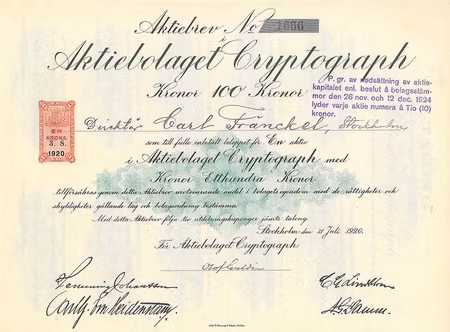 Aktiebrev No 1006
å
Aktiebolaget Cryptograph
Kronor 100 Kronor
P. gr. av nedsättning av aktie-
kapitalet enl. beslut å bolagsstäm-
mor den 26 nov. och 12 dec. 1924
lyder varje aktie numera å Tio (10)
kronor.
EN
KRONA
3/8
1920
Direktör Carl Fränckel, Stockholm
som till fullo inbetalt beloppet för En aktie
i Aktiebolaget Cryptograph med
Kronor Etthundra Kronor
tillförsäkras genom detta Aktiebrev motsvarande andel i bolagets egendom med de rättigheter och
skyldigheter gällande lag och bolagsordning bestämma.
Med detta Aktiebrev följa tio utdelningskuponger jämte talong.
Stockholm den 31 Juli 1920.
För Aktiebolaget Cryptograph: